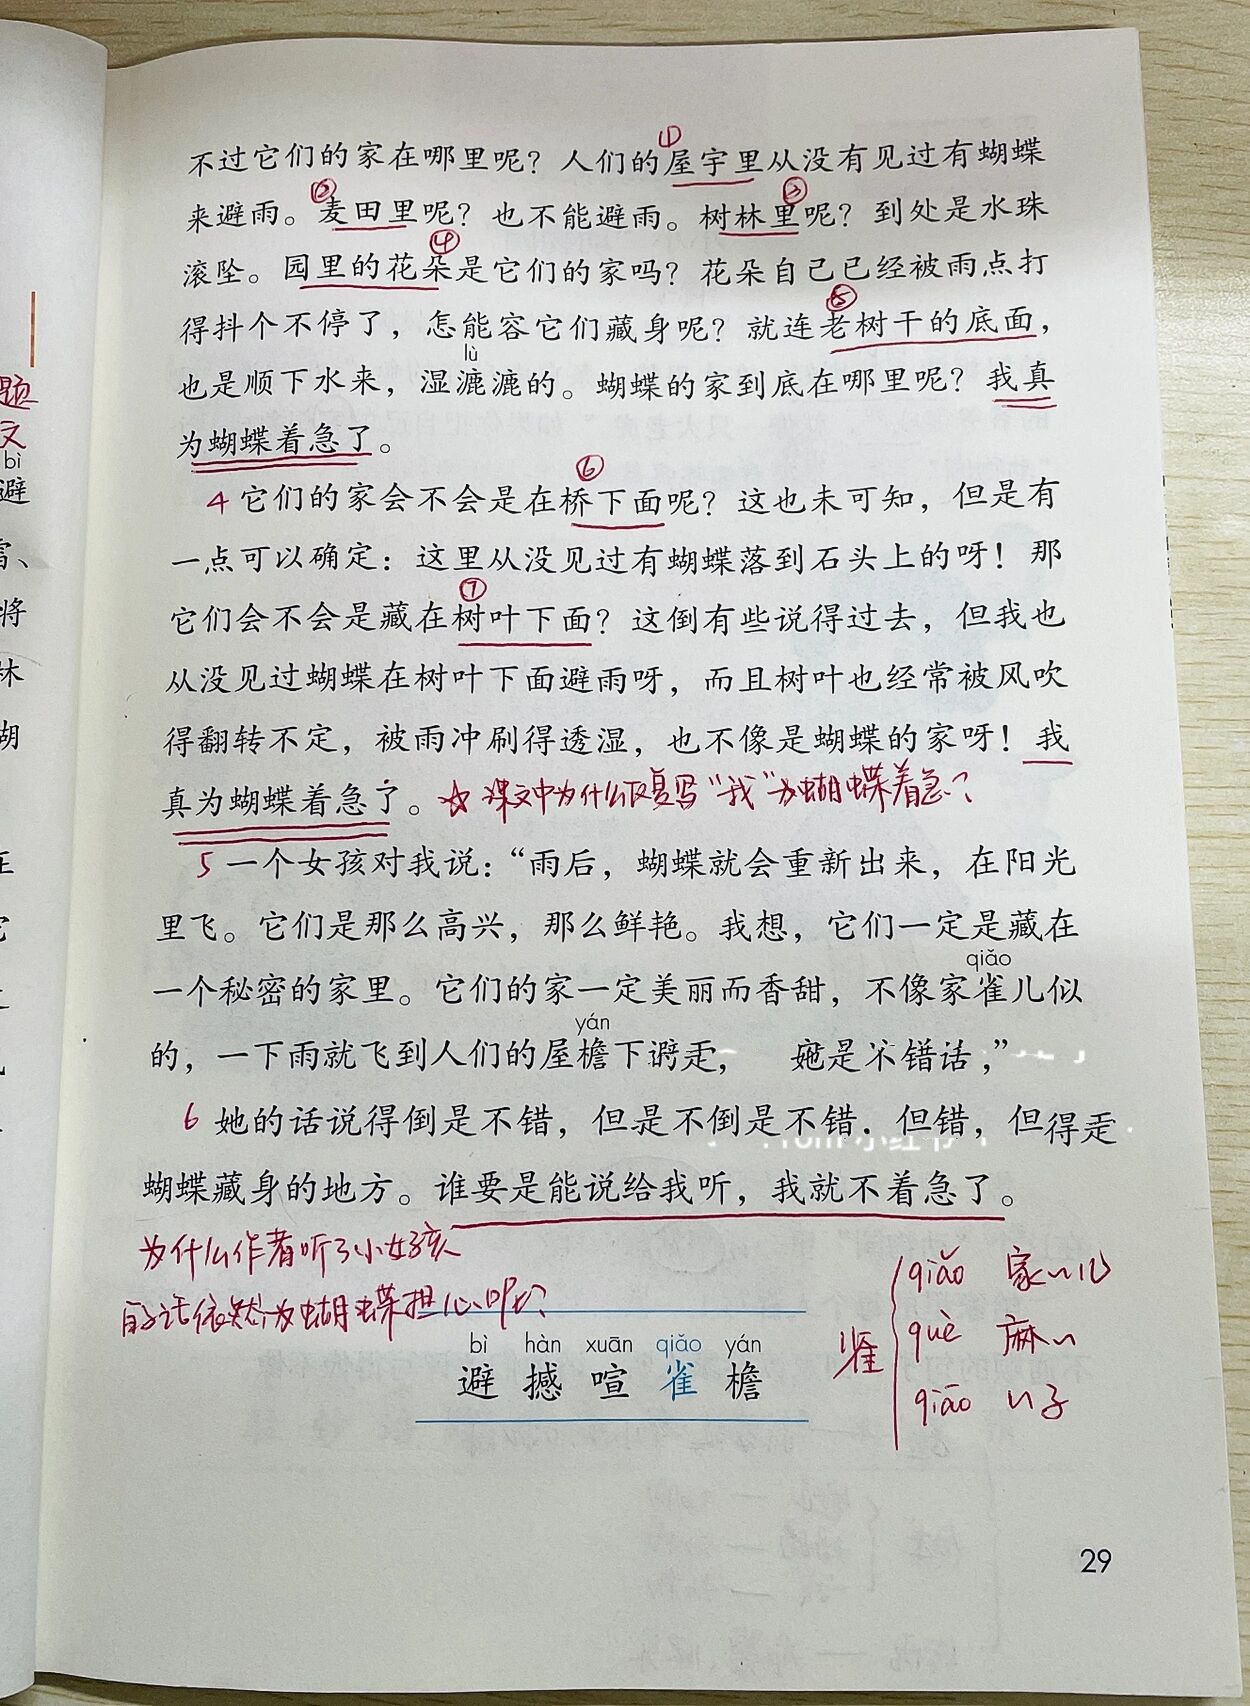 不过它们的家在哪里呢？人们的屋宇里从没有见过有蝴蝶
①
来避雨。麦田里呢？也不能避雨。树林里呢？到处是水珠
② ③
滚坠。园里的花朵是它们的家吗？花朵自己已经被雨点打
④
得抖个不停了，怎能容它们藏身呢？就连老树干的底面，
⑤
lù
也是顺下水来，湿漉漉的。蝴蝶的家到底在哪里呢？我真
为蝴蝶着急了。
题
文
bì
避
将
林
胡
4 它们的家会不会是在桥下面呢？这也未可知，但是有
⑥
一点可以确定：这里从没见过有蝴蝶落到石头上的呀！那
它们会不会是藏在树叶下面？这倒有些说得过去，但我也
⑦
从没见过蝴蝶在树叶下面避雨呀，而且树叶也经常被风吹
得翻转不定，被雨冲刷得透湿，也不像是蝴蝶的家呀！我
真为蝴蝶着急了。☆课文中为什么反复写“我”为蝴蝶着急？
5 一个女孩对我说：“雨后，蝴蝶就会重新出来，在阳光
里飞。它们是那么高兴，那么鲜艳。我想，它们一定是藏在
qiǎo
一个秘密的家里。它们的家一定美丽而香甜，不像家雀儿似
yán
的，一下雨就飞到人们的屋檐下 是不错话，”
6 她的话说得倒是不错，但是不倒是不错．但错，但得
蝴蝶藏身的地方。谁要是能说给我听，我就不着急了。
为什么作者听了小女孩
的话依然为蝴蝶担心呢？
bì hàn xuān qiǎo yán
避 撼 喧 雀 檐
雀
qiǎo 家〃儿
què 麻〃
qiāo 〃子
29